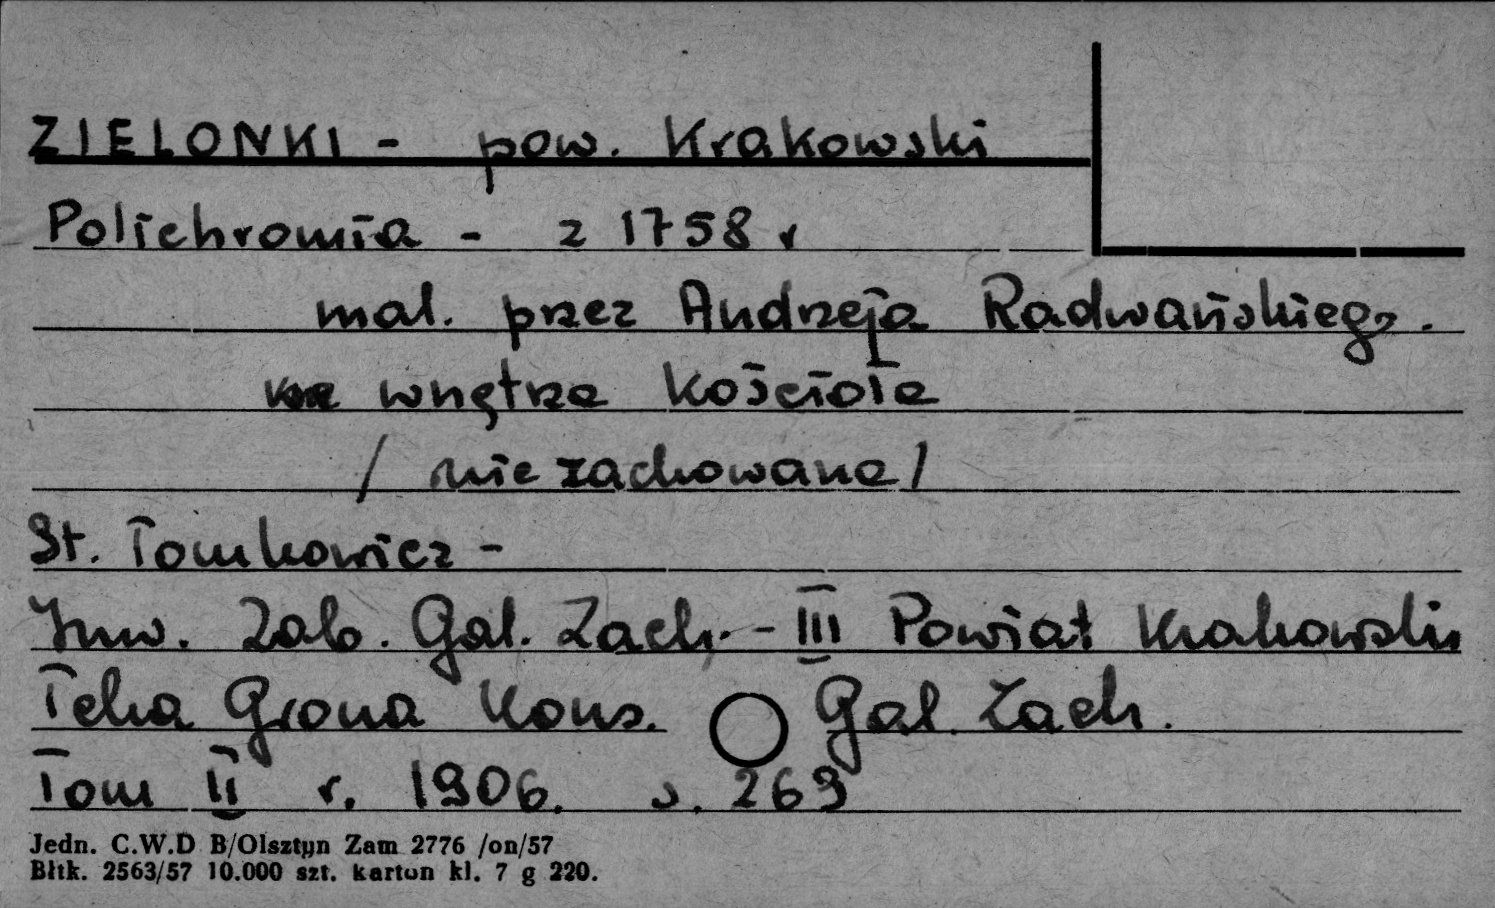 ZIELONKI - pow. Krakowski
Polichromia - z 1758 r
mal. przez Andrzeja Radwańskiego.
wnętrze kościoła
/ nie zachowane /
St. Tomkowicz -
Inw. Zab. Gal. Zach. - III Powiat Krakowski
Teka Grona Kons. Gal. Zach.
Tom II r. 1906. s. 269
Jedn. C.W.D B/Olsztyn Zam 2776 /on/57
Błtk. 2563/57 10.000 szt. karton kl. 7 g 220.